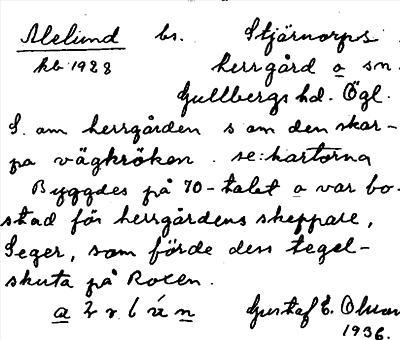 Alelund bs. Stjärnorps
kb 1928 herrgård o sn.
Gullbergs hd. Ögl.
S. om herrgården s om den skar-
pa vägkröken. se: kartorna
Byggdes på 70-talet o var bo-
stad för herrgårdens skeppare,
Seger, som förde dess tegel-
skuta på Roxen.
Gustaf E.
1936.